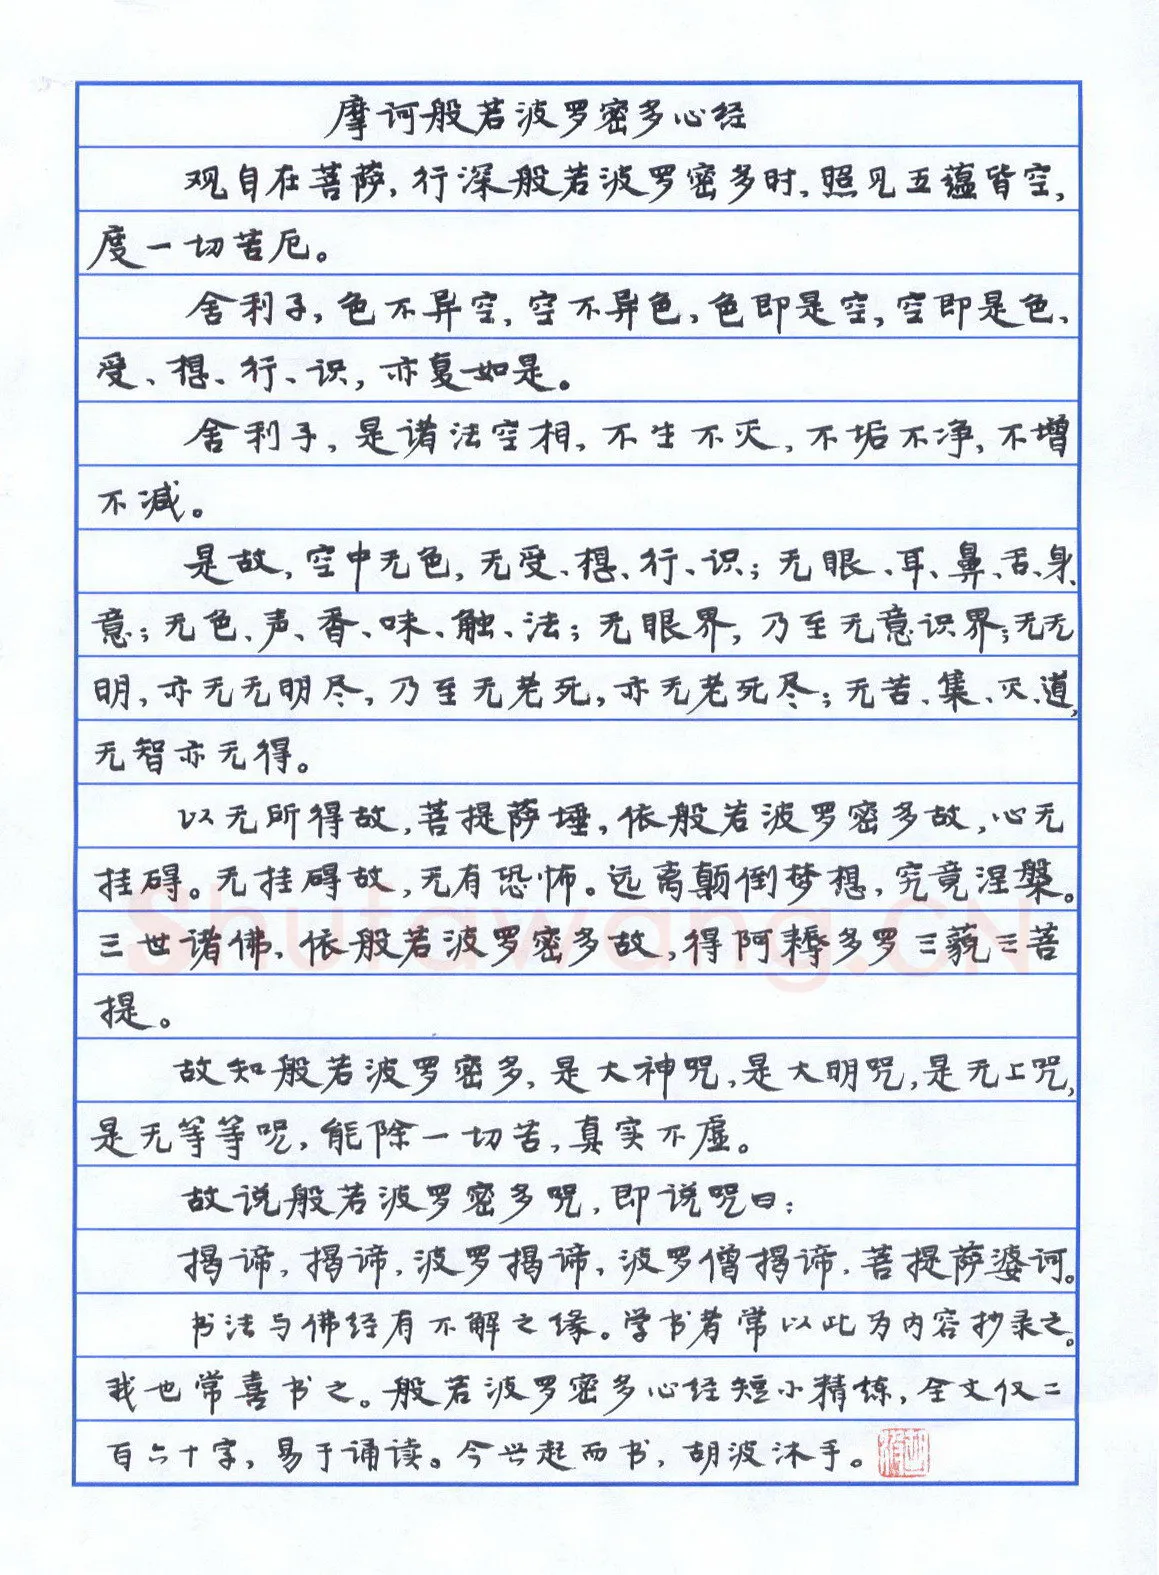 摩诃般若波罗密多心经
观自在菩萨，行深般若波罗密多时，照见五蕴皆空，
度一切苦厄。
舍利子，色不异空，空不异色，色即是空，空即是色、
受、想、行、识，亦复如是。
舍利子，是诸法空相，不生不灭，不垢不净，不增
不减。
是故，空中无色，无受、想、行、识；无眼、耳、鼻、舌、身、
意；无色、声、香、味、触、法；无眼界，乃至无意识界；无无
明，亦无无明尽，乃至无老死，亦无老死尽；无苦、集、灭、道，
无智亦无得。
以无所得故，菩提萨埵，依般若波罗密多故，心无
挂碍。无挂碍故，无有恐怖。远离颠倒梦想，究竟涅槃。
三世诸佛、依般若波罗密多故，得阿耨多罗三藐三菩
提。
故知般若波罗密多，是大神咒，是大明咒，是无上咒，
是无等等呢，能除一切苦，真实不虚。
故说般若波罗密多咒，即说咒曰：
揭谛，揭谛，波罗揭谛，波罗僧揭谛，菩提萨婆诃。
书法与佛经有不解之缘。学书者常以此为内容抄录之。
我也常喜书之。般若波罗密多心经短小精练，全文仅二
百六十字，易于诵读。今兴起而书，胡波沐手。
shufawang.CN